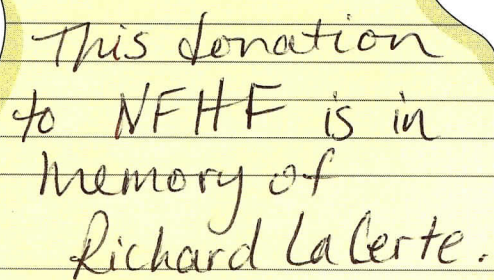 This donation
to NFHF is in
memory of
Richard LaCerte.